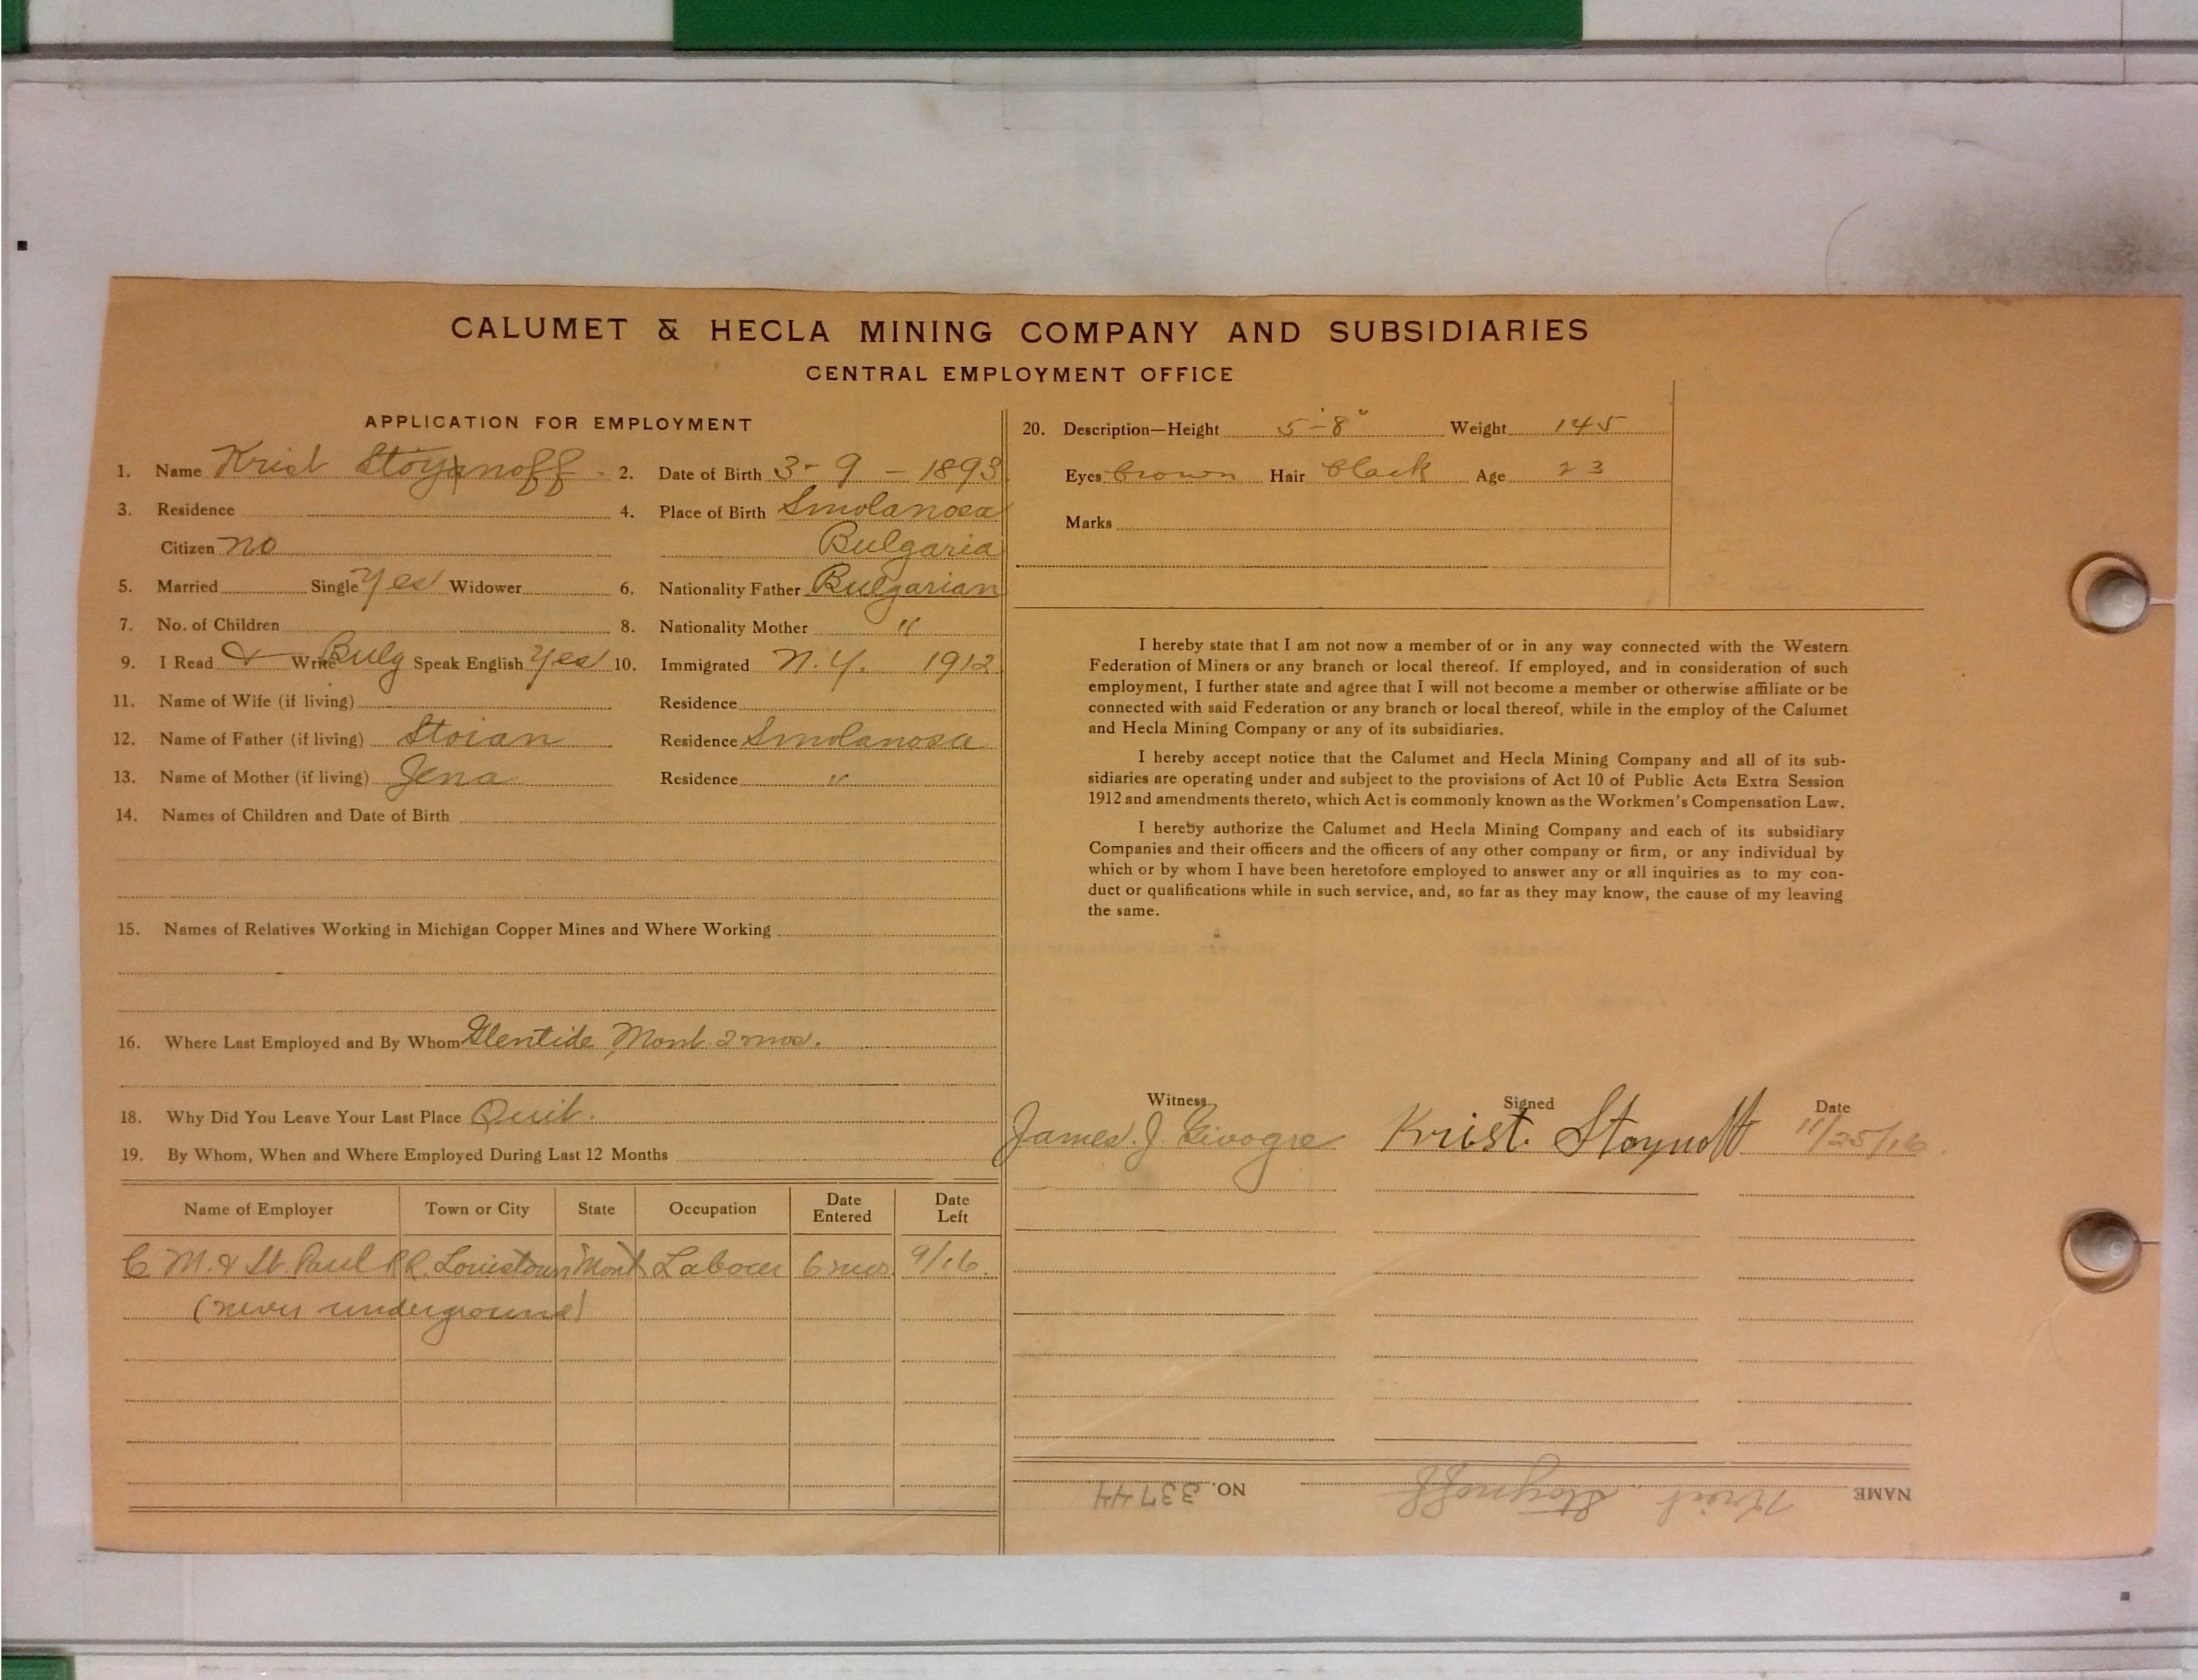 CALUMET & HECLA MINING COMPANY AND SUBSIDIARIES
CENTRAL EMPLOYMENT OFFICE
APPLICATION FOR EMPLOYMENT
1. Name Krist Stoyanoff 2. Date of Birth 3-9-1893
3. Residence 4. Place of Birth Smolanosa
Citizen no Bulgaria
5. Married Single Yes Widower 6. Nationality Father Bulgarian
7. No. of Children 8. Nationality Mother "
9. I Read & Write Bulg Speak English Yes 10. Immigrated N.Y. 1912
11. Name of Wife (if living) Residence
12. Name of Father (if living) Stoian Residence Smolanosa
13. Name of Mother (if living) Jena Residence "
14. Names of Children and Date of Birth
15. Names of Relatives Working in Michigan Copper Mines and Where Working
16. Where Last Employed and By Whom Glentide, Mont 2 mos.
18. Why Did You Leave Your Last Place Quit.
19. By Whom, When and Where Employed During Last 12 Months
Name of Employer Town or City State Occupation Date Entered Date Left
C. M. & St. Paul R.R. Louistown Mont Laborer 6 mos. 9/16.
(never underground)
20. Description—Height 5'-8" Weight 145
Eyes brown Hair black Age 23
Marks
I hereby state that I am not now a member of or in any way connected with the Western
Federation of Miners or any branch or local thereof. If employed, and in consideration of such
employment, I further state and agree that I will not become a member or otherwise affiliate or be
connected with said Federation or any branch or local thereof, while in the employ of the Calumet
and Hecla Mining Company or any of its subsidiaries.
I hereby accept notice that the Calumet and Hecla Mining Company and all of its sub-
sidiaries are operating under and subject to the provisions of Act 10 of Public Acts Extra Session
1912 and amendments thereto, which Act is commonly known as the Workmen's Compensation Law.
I hereby authorize the Calumet and Hecla Mining Company and each of its subsidiary
Companies and their officers and the officers of any other company or firm, or any individual by
which or by whom I have been heretofore employed to answer any or all inquiries as to my con-
duct or qualifications while in such service, and, so far as they may know, the cause of my leaving
the same.
Witness Signed Date
James J. Krist Stoynoff 11/25/16
NAME Krist Stoynoff NO. 33744